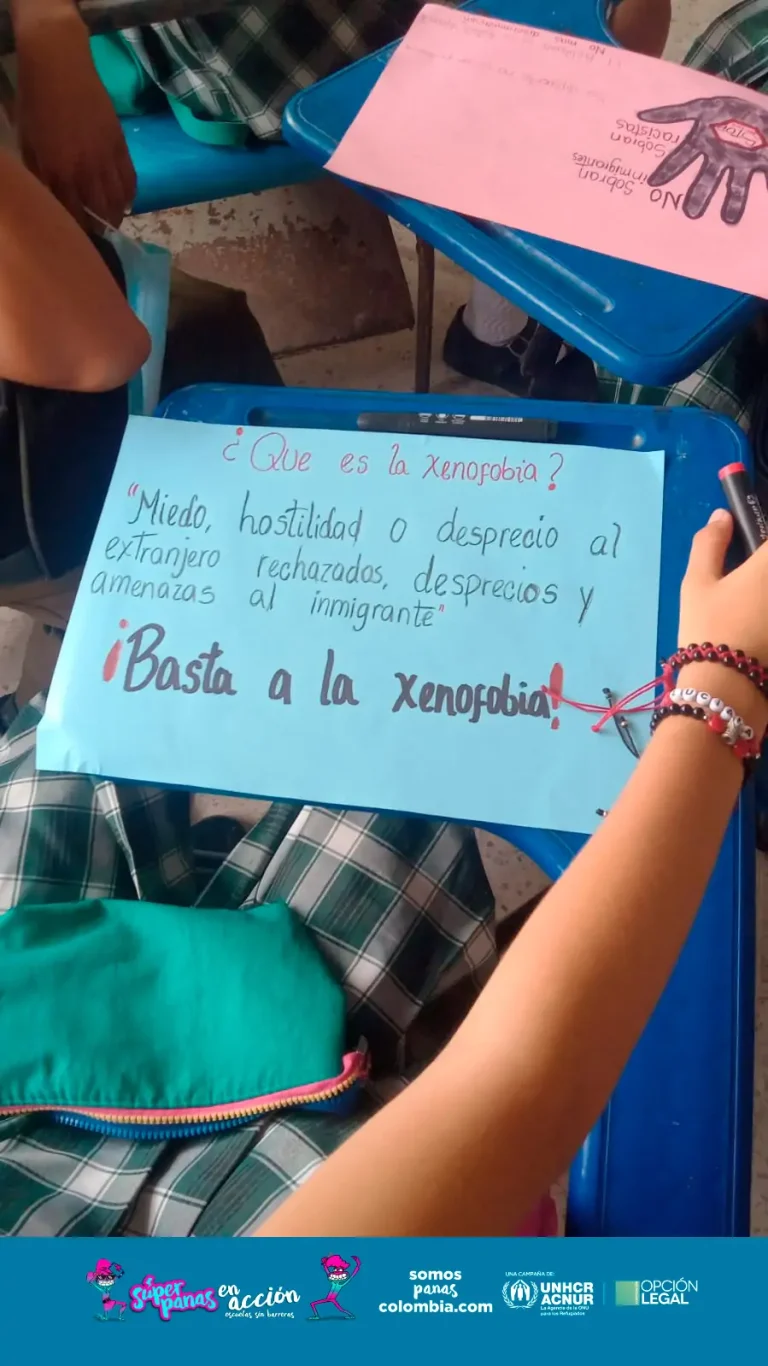 No
Sobran
inmigrantes
Sobran
racistas
¿Que es la xenofobia?
"Miedo, hostilidad o desprecio al
extranjero rechazados, desprecios y
amenazas al inmigrante"
¡Basta a la xenofobia!
Súper
panas
en
acción
escuelas sin barreras
somos
panas
colombia.com
UNA CAMPAÑA DE:
UNHCR
ACNUR
La Agencia de la ONU
para los Refugiados
OPCIÓN
LEGAL